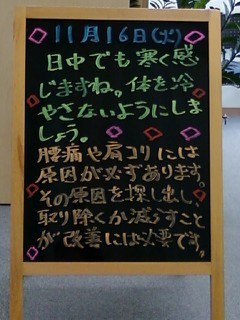 11月16日(火)
日中でも寒く感
じますね。体を冷
やさないようにしま
しょう。
腰痛や肩コリには
原因が必ずあります。
その原因を探し出し
取り除くか減らすこと
が改善には必要です。